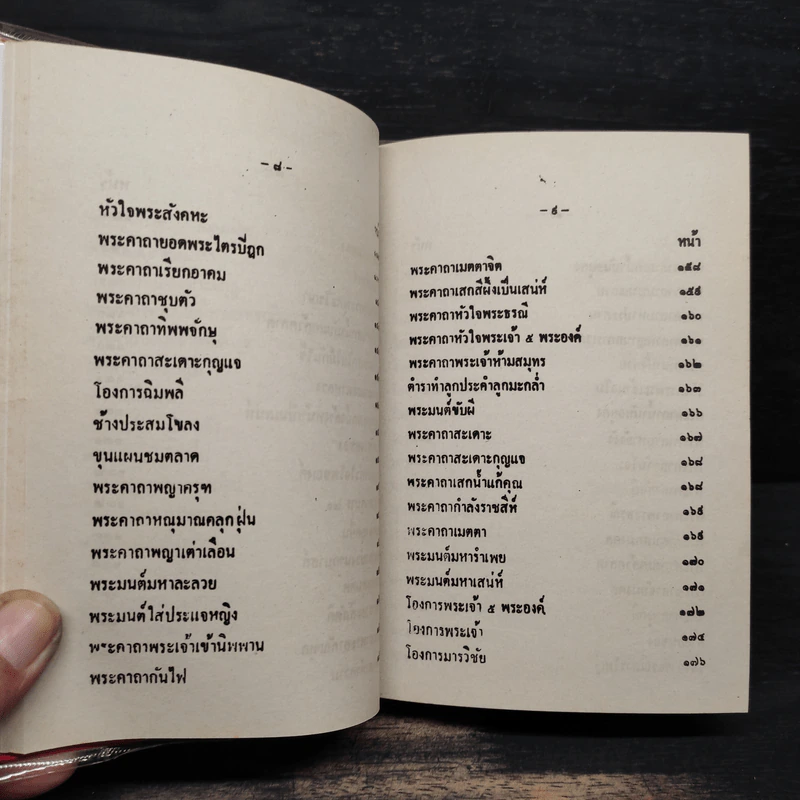 - ๘ -
หัวใจพระสังคหะ
พระคาถายอดพระไตรปิฎก
พระคาถาเรียกอาคม
พระคาถาชุบตัว
พระคาถาทิพพจักษุ
พระคาถาสะเดาะกุญแจ
โองการฉิมพลี
ช้างประสมโขลง
ขุนแผนชมตลาด
พระคาถาพญาครุฑ
พระคาถาหณุมาณคลุกฝุ่น
พระคาถาพญาเต่าเลือน
พระมนต์มหาละลวย
พระมนต์ใส่ประแจหญิง
พระคาถาพระเจ้าเข้านิพพาน
พระคาถากันไฟ
- ๙ -
หน้า
พระคาถาเมตตาจิต ๑๕๘
พระคาถาเสกสีผึ้งเป็นเสน่ห์ ๑๕๙
พระคาถาหัวใจพระธรณี ๑๖๐
พระคาถาหัวใจพระเจ้า ๕ พระองค์ ๑๖๑
พระคาถาพระเจ้าห้ามสมุทร ๑๖๒
ตำราทำลูกประคำลูกมะกล่ำ ๑๖๓
พระมนต์ขับผี ๑๖๖
พระคาถาสะเดาะ ๑๖๗
พระคาถาสะเดาะกุญแจ ๑๖๘
พระคาถาเสกน้ำแก้คุณ ๑๖๘
พระคาถากำลังราชสีห์ ๑๖๙
พระคาถาเมตตา ๑๖๙
พระมนต์มหารำเพย ๑๗๐
พระมนต์มหาเสน่ห์ ๑๗๑
โองการพระเจ้า ๕ พระองค์ ๑๗๒
โองการพระเจ้า ๑๗๔
โองการมารวิชัย ๑๗๖